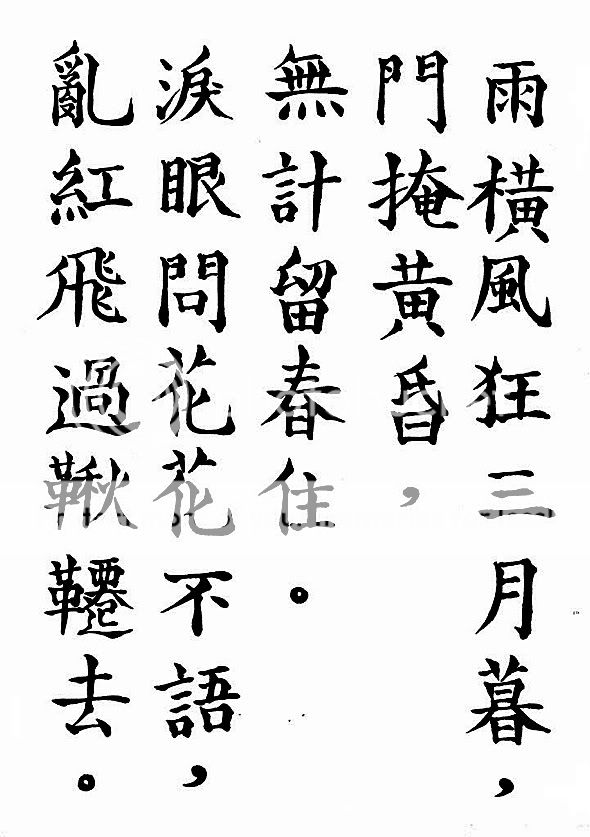 雨橫風狂三月暮，
門掩黃昏，
無計留春住。
淚眼問花花不語，
亂紅飛過鞦韆去。